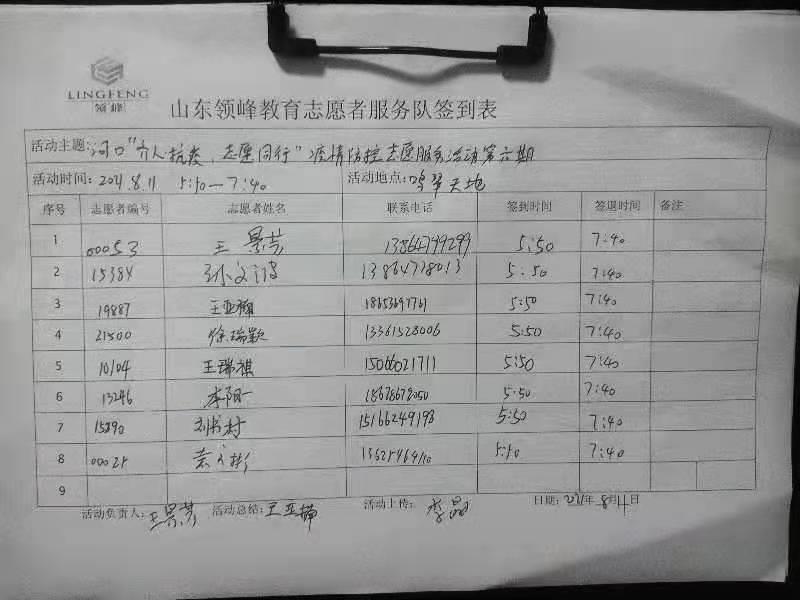 LINGFENG
领峰
山东领峰教育志愿者服务队签到表
活动主题: 河口"齐人抗疫、志愿同行"疫情防控志愿服务活动第六期
活动时间: 2021.8.11 5:50—7:40 活动地点: 鸣翠天地
序号 志愿者编号 志愿者姓名 联系电话 签到时间 签退时间 备注
1 00053 王景芸 13864799299 5:50 7:40
2 15384 孙文波 13864778013 5:50 7:40
3 19887 王亚楠 18653697761 5:50 7:40
4 21500 徐瑞歌 13361528006 5:50 7:40
5 10104 王瑞祺 15066021711 5:50 7:40
6 13246 李阳 18678678050 5:50 7:40
7 15890 刘书村 15166249198 5:50 7:40
8 00025 5:50 7:40
9
活动负责人: 王景芸 活动总结: 王亚楠 活动上传: 李晶 日期: 2021年8月11日